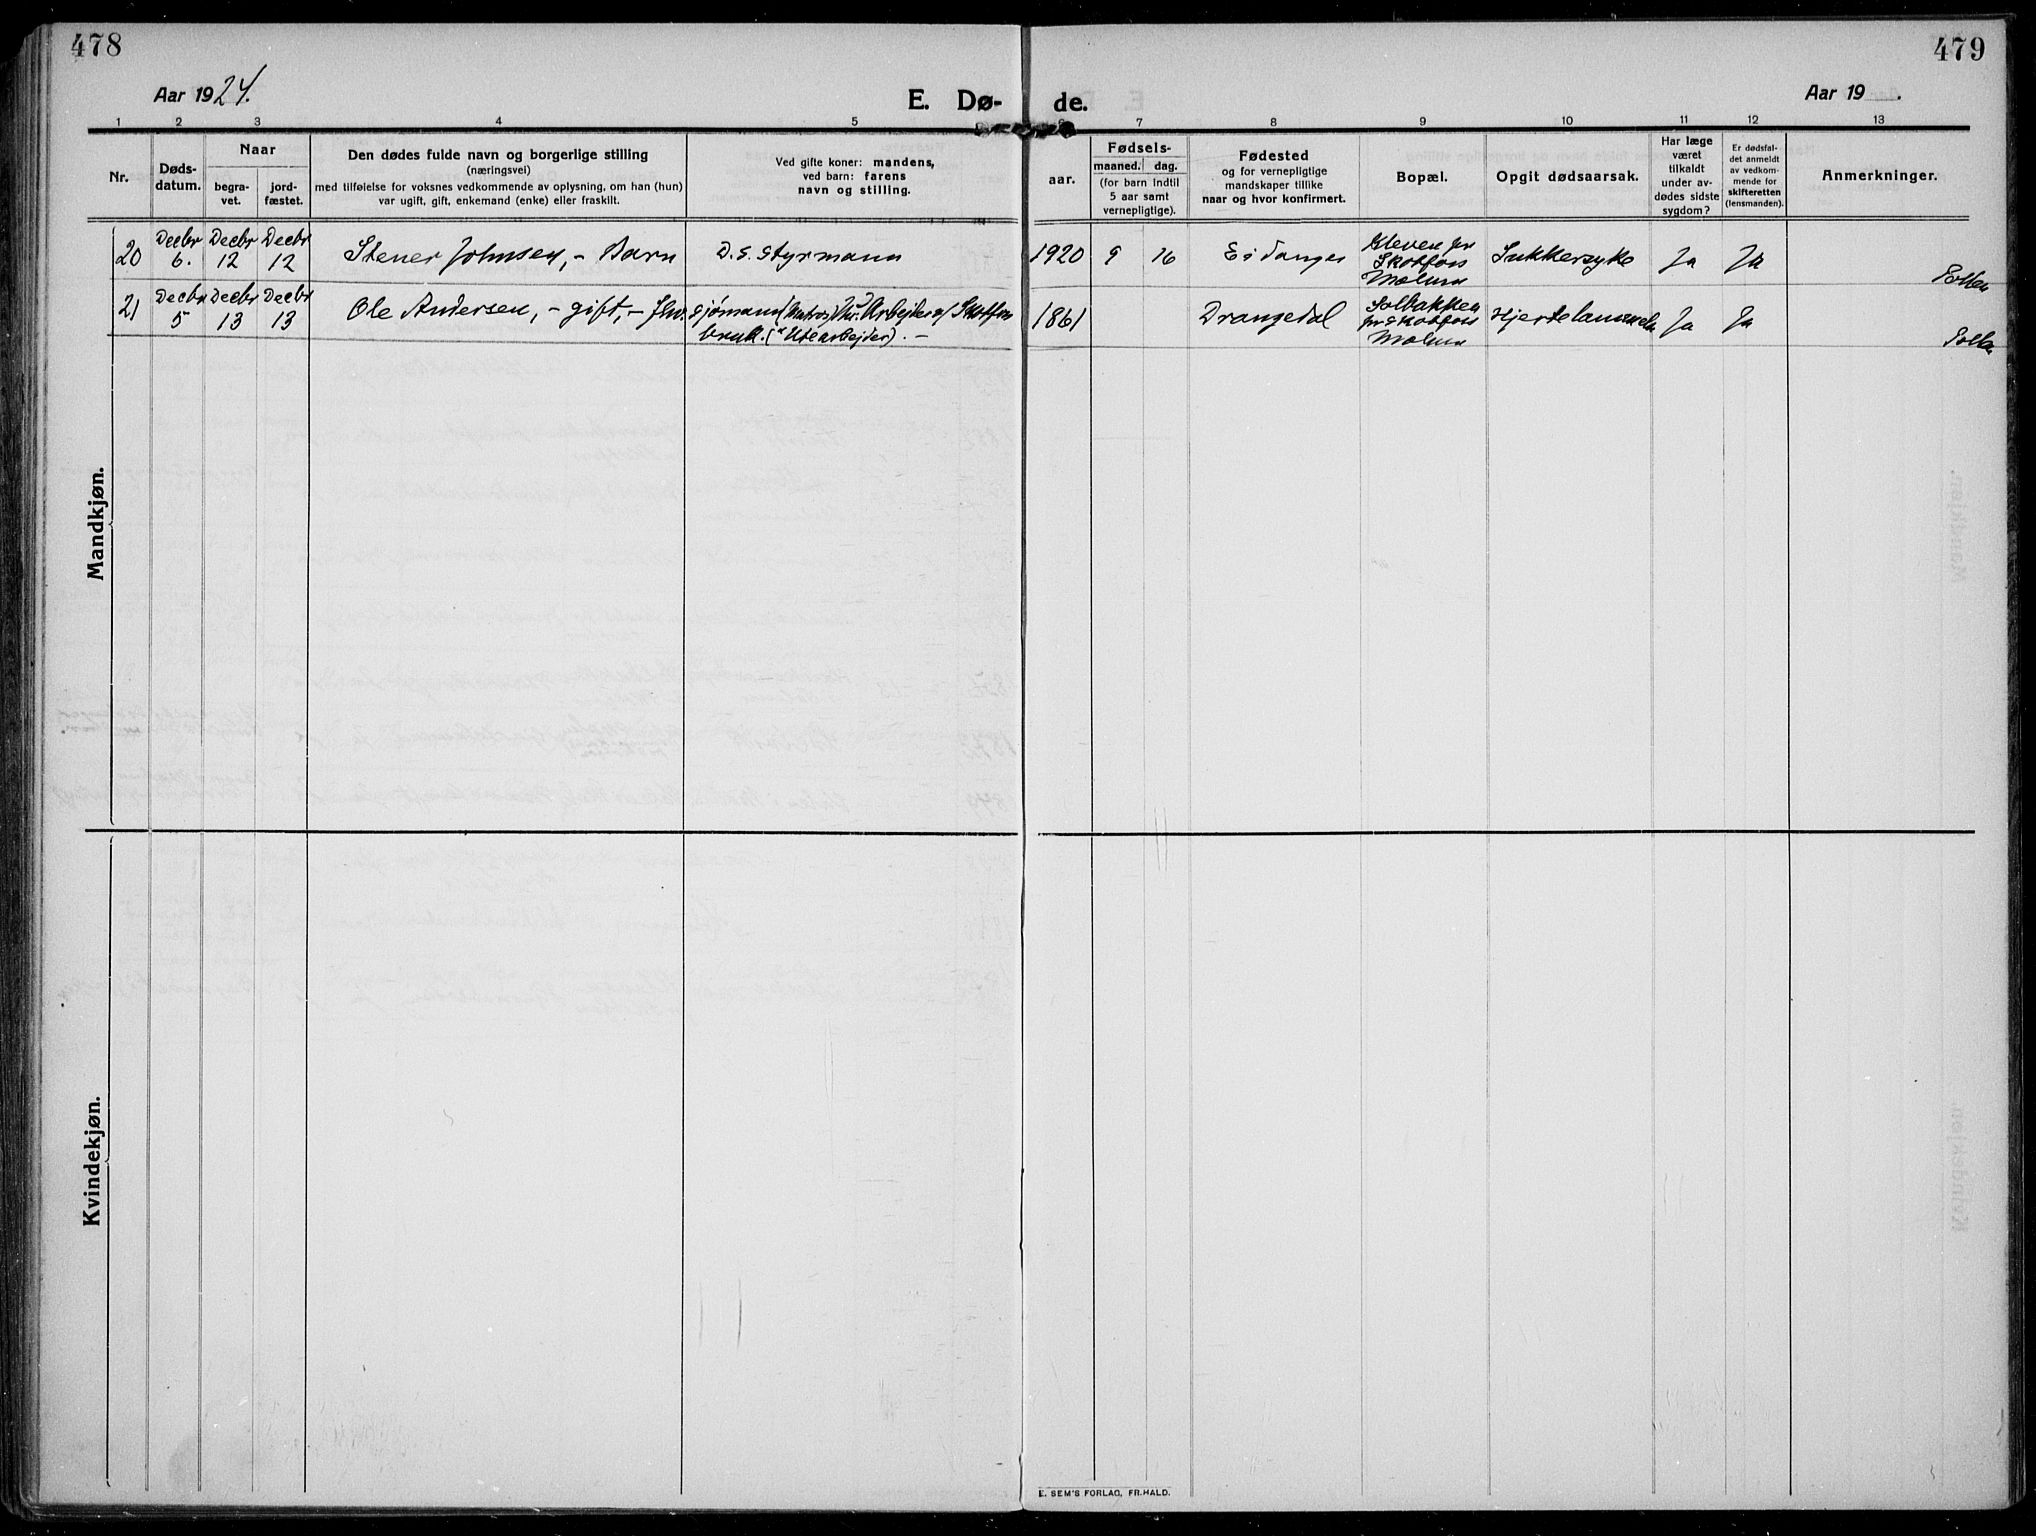 478
479
Aar 1924.
E. Dø-
de.
Aar 19 .
1 2 3 4 5 6 7 8 9 10 11 12 13
Nr.
Døds-
datum.
Naar
begra-
vet.
jord-
fæstet.
Den dødes fulde navn og borgerlige stilling
(næringsvei)
med tilføielse for voksnes vedkommende av oplysning, om han (hun)
var ugift, gift, enkemand (enke) eller fraskilt.
Ved gifte koner: mandens,
ved barn: farens
navn og stilling.
Fødsels-
aar.
maaned. dag.
(for barn indtil
5 aar samt
vernepligtige).
Fødested
og for vernepligtige
mandskaper tillike
naar og hvor konfirmert.
Bopæl.
Opgit dødsaarsak.
Har læge
været
tilkaldt
under av-
dødes sidste
sygdom?
Er dødsfal-
det anmeldt
av vedkom-
mende for
skifteretten
(lensmanden).
Anmerkninger.
20 Decbr 6. Decbr 12 Decbr 12 Stener Johnsen, - Barn D. S. Styrmann 1920 9 16 Eidanger Kleven pr Skotfoss Melum Sukkersyke Ja Ja
21 Decbr 5 Decbr 13 Decbr 13 Ole Andersen, - gift, - Sjømann (Matros) Arbejder v/ Skotfos
bruk. ("Utearbejder). - 1861 Drangedal Solbakken pr Skotfoss Melum Hjertelammelse Ja Ja
Mandkjøn.
Kvindekjøn.
E. SEM'S FORLAG, FR.HALD.